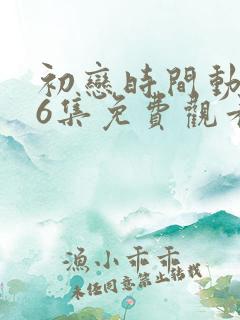 初戀時間動
6集免費觀看
漁小乖乖
未經同意禁止轉載